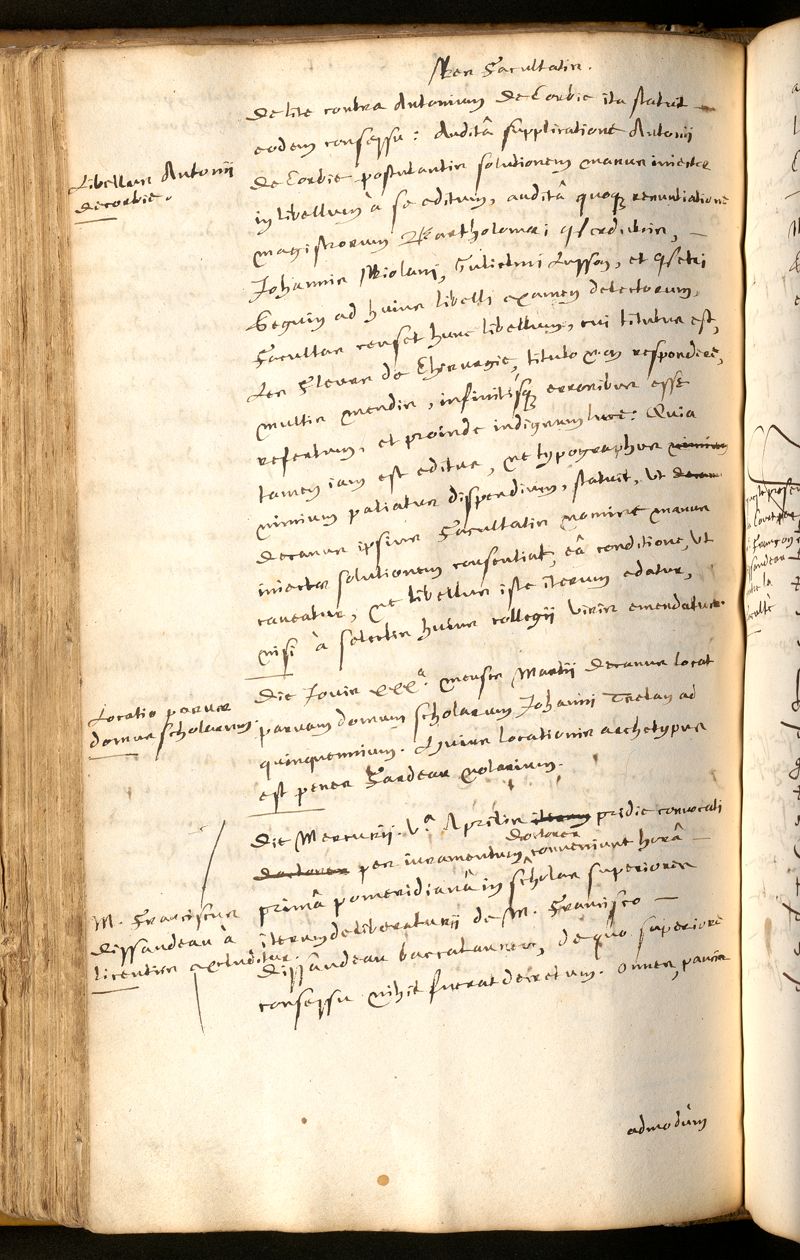 Res Facultatis.
De lite contra Antonium De Corbie ita statuit
eodem consessu: Auditâ supplicatione Antonii
De Corbie postulantis solutionem manus iniectæ
in libellum à se editum, auditâ quoque renuntiatione
magistrorum Bartholomæi
Johannis Riolani, Gulielmi Lusson, et
Seguin ad huius libelli examen delectorum,
Facultas censet hunc libellum, cui titulus est,
Les Fleurs de Chirurgie, titulo non respondere,
multis mendis, infinitisque erroribus esse
refertum, et proinde indignum luce: Quia
tamen iam est editus, ne typographus nimium
nimium patiatur dispendium, statuit, ut
decanus ipsius Facultatis nomine manus
iniectæ solutionem consentiat, eâ conditione, ut
caveatur, ne libellus iste iterum edatur,
nisi à selectis huius collegii viris emendatus.
Libellus Antonii
decorbie.
Die Jovis xxx.ª mensis Martii Decanus locat
parvam domum scholarum Johanni Thelan ad
quinquennium. Huius locationis archetypus
est penes Fardeau notarium.
Locatio parvæ
domus scholarum.
Die Mercurii. V.ª Aprilis iterum pridie convocati
doctores per iuramentum doctores conveniunt horâ
primâ pomeridianâ in scholas superiores
iterum deliberaturi de M. Francisco
Dissandeau baccalaureo, de quo superiore
consessu nihil fuerat decretum. Omnes, paucis
M. Franciscus
dissandeau à
licentiis excluditur.
admodùm